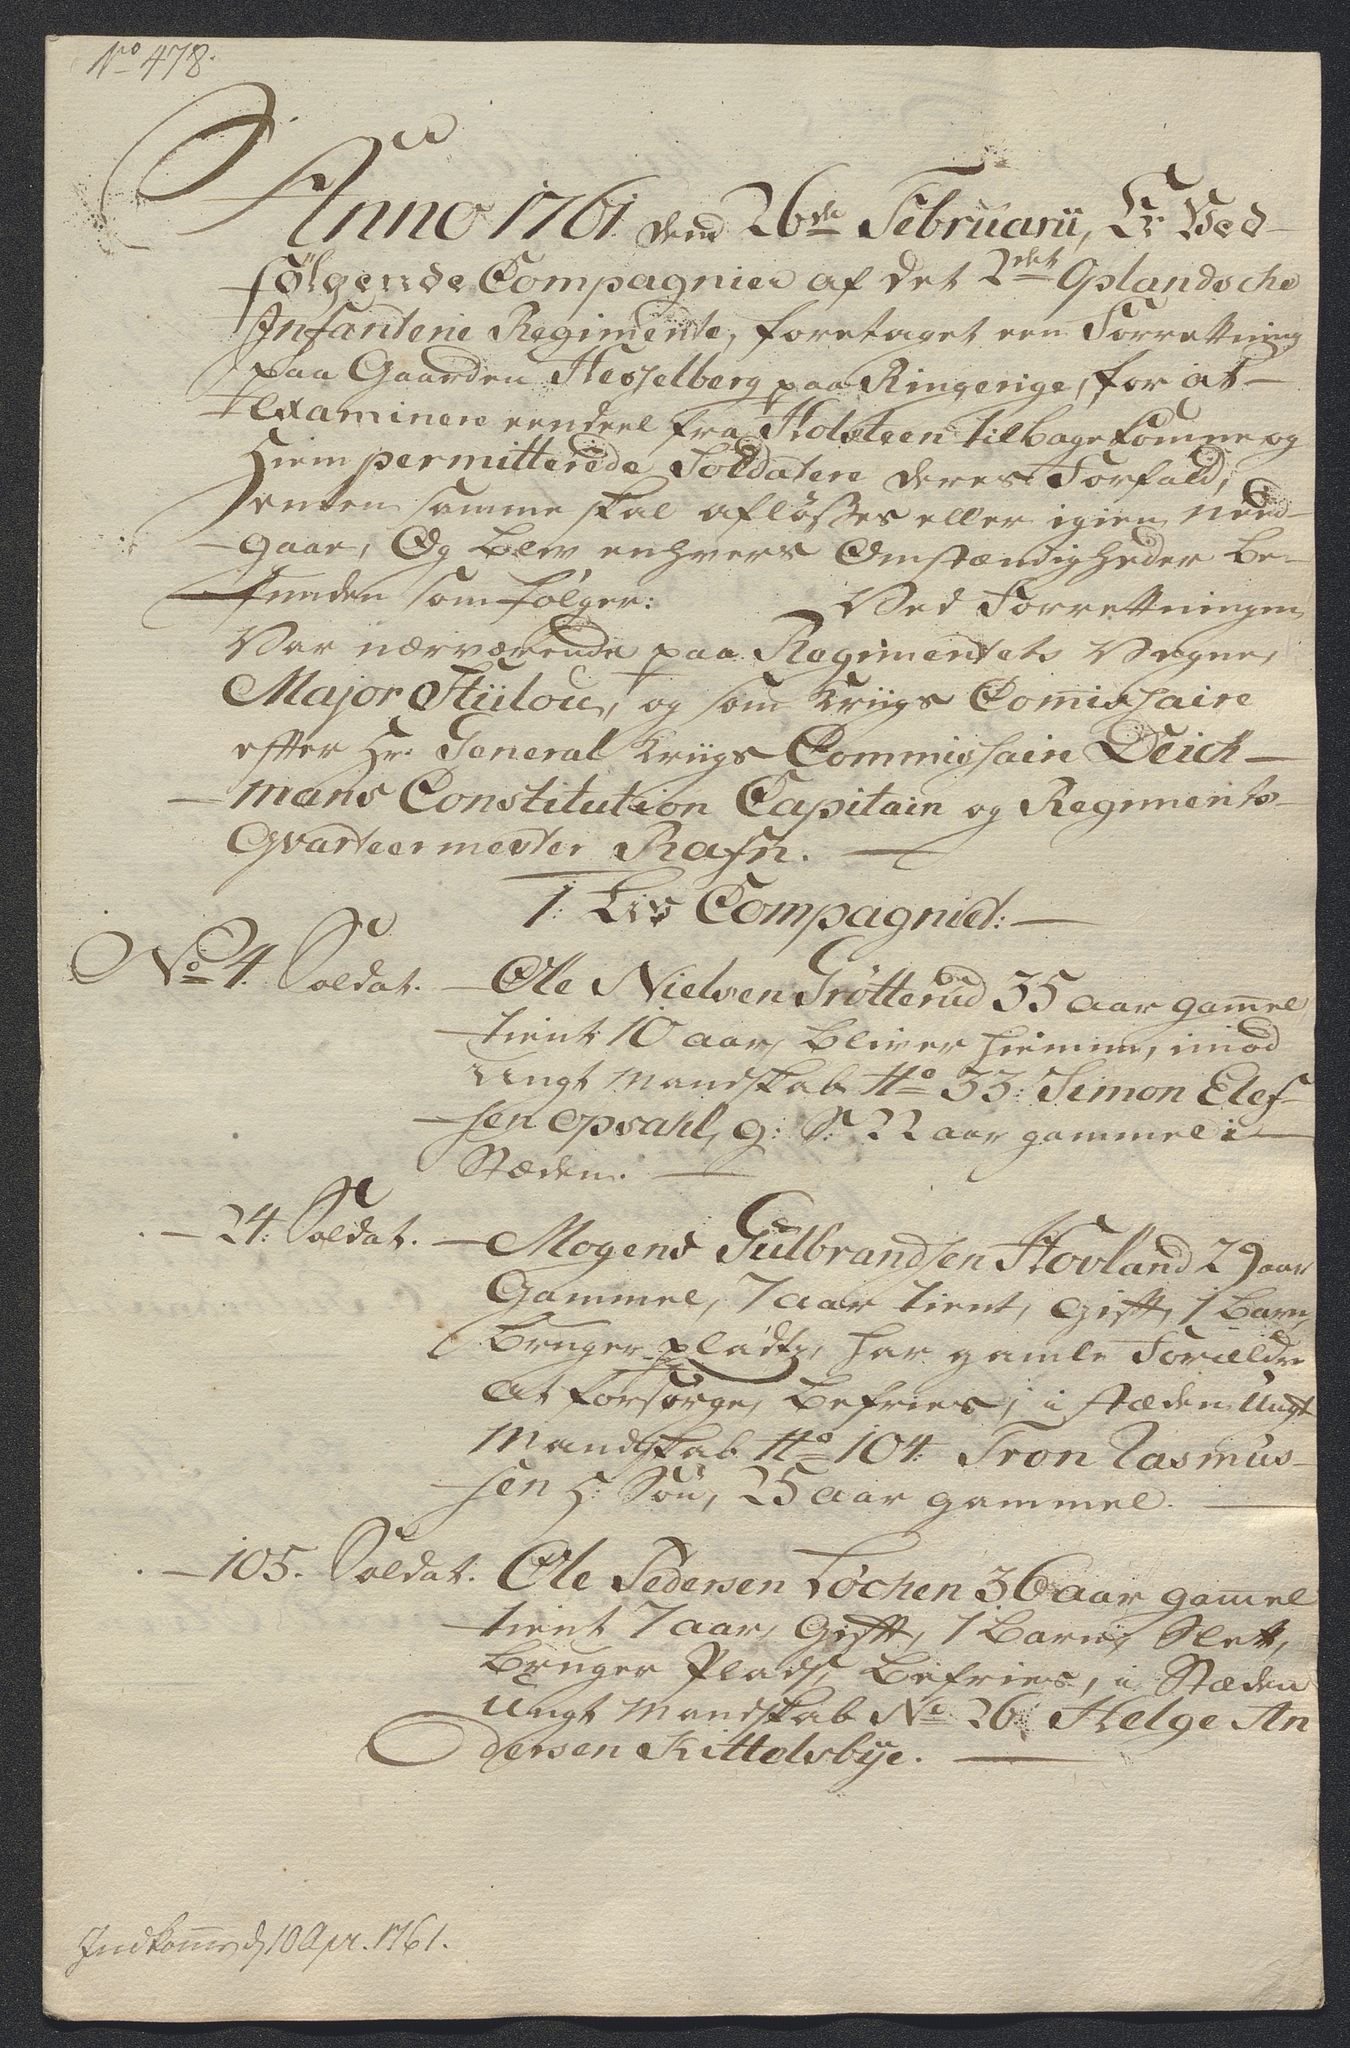 No 478.
Anno 1761 dend 26de Februarii, Er Ved-
følgende Compagnier af det 2det Oplandsche
Infanterie Regimente, foretaget een Forrettning
paa Gaarden Hesselberg paa Ringerige, for at
Examinere eendeel fra Holsteen tilbagekomne og
Hiem permitterede Soldatere deres Forfald,
enten samme skal afløses eller igien need-
gaae, Og blev enhvers Omstændigheder be-
funden som følger: Ved Forrettningen
Var nærværende paa Regimentets Vegne,
Major Hülou, og som Kriigs Comissaire
efter Hr: General Kriigs Commissaire Deich-
mans Constitution Capitain og Regiments-
Qvarteermester Rafn.
1: Liv Compagniet:
No 4. Soldat. Ole Nielsen Grötterud 35 aar gamel
tient 10 aar, bliver hiemme, imod
Ungt Mandskab No 33: Simon Elef-
sen Opsahl, g: S: 22 aar gammel i
Stæden.
24: Soldat. Mogens Gulbrandsen Hovland 29 aar
Gammel, 7 aar tient, Gift, 1 Barn,
bruger pladtz, har gamle Forældre
at forsørge, befries, i stæden Ungt
Mandskab No 104: Tron Rasmus-
sen H: Søn, 25 aar gammel.
105. Soldat. Ole Pedersen Løchen 36 aar gamel
tient 7 aar, Gift, 1 Barn, Slett,
bruger Plads, befries, i Stæden
Ungt Mandskab No 26. Helge An
dersen Kittelsbye.
Indkomn d 10 Apr. 1761.